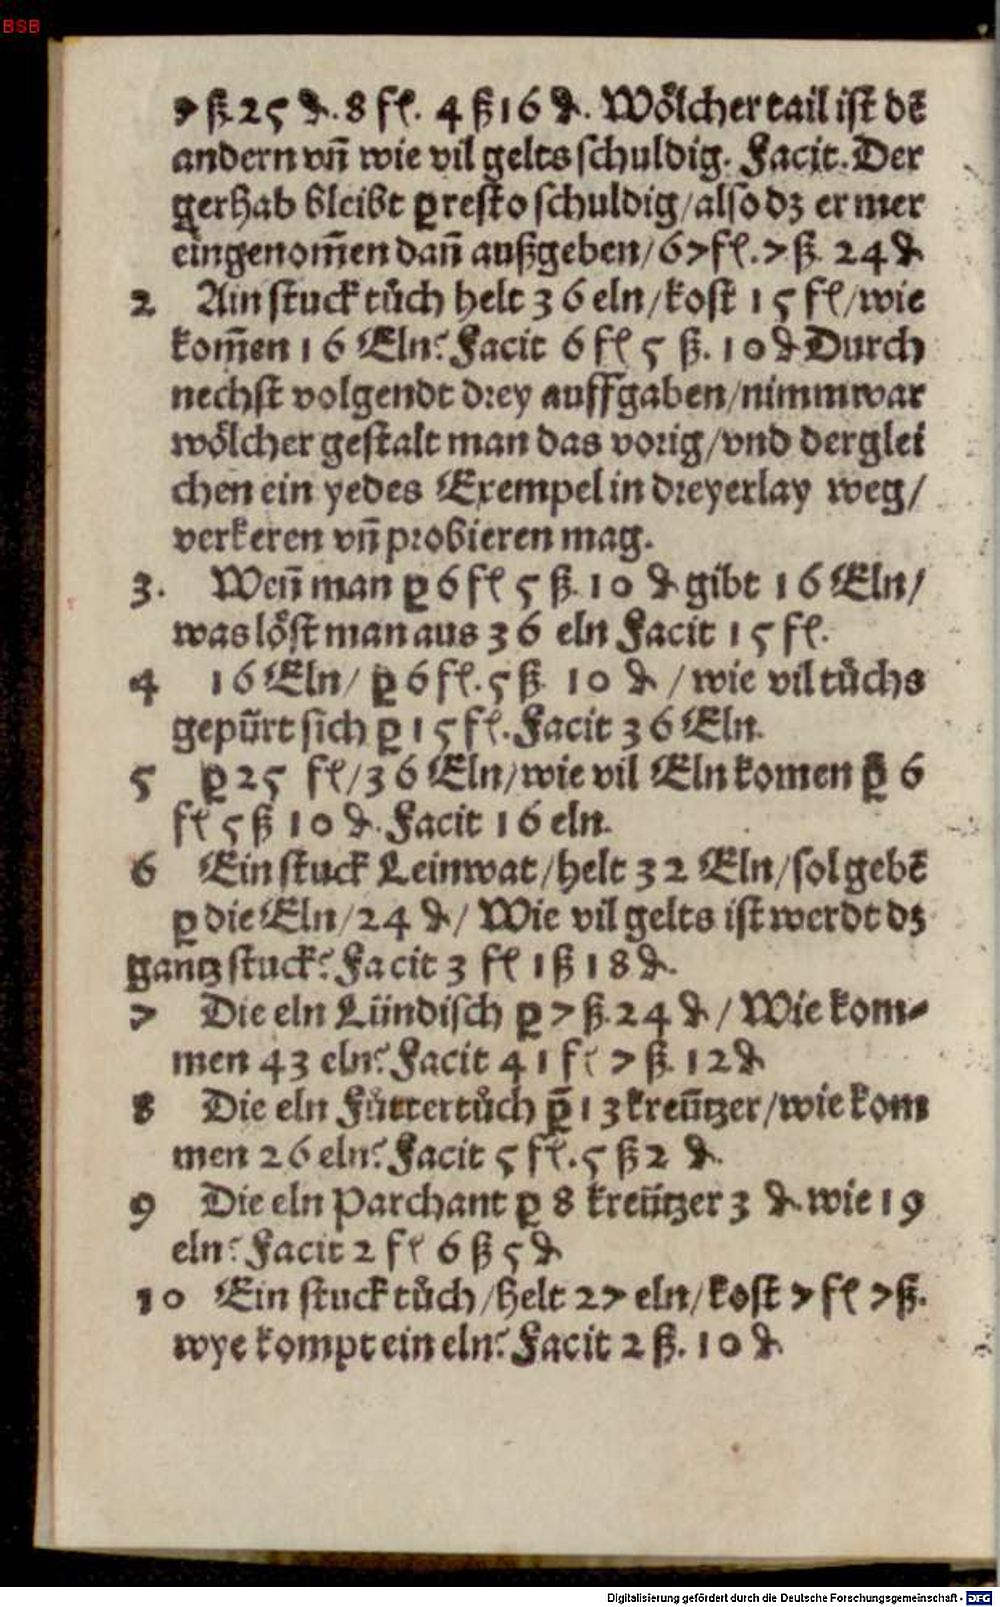 BSB
7 ß. 25 ₰. 8 fl. 4 ß 16 ₰. Woͤlcher tail ist dē
andern vñ wie vil gelts schuldig. Facit. Der
gerhab bleibt ꝑ resto schuldig / also dz er mer
eingenom̃en dañ außgeben / 67 fl. 7 ß. 24 ₰
2 Ain stuck tuͦch helt 36 eln / kost 15 fl / wie
kom̃en 16 Eln? Facit 6 fl 5 ß. 10 ₰ Durch
nechst volgendt drey auffgaben / nimm war
woͤlcher gestalt man das vorig / vnd derglei
chen ein yedes Exempel in dreyerlay weg /
verkeren vñ probieren mag.
3. Weñ man ꝑ 6 fl 5 ß. 10 ₰ gibt 16 Eln /
was loͤst man aus 36 eln Facit 15 fl.
4 16 Eln / ꝑ 6 fl. 5 ß 10 ₰ / wie vil tuͦchs
gepuͤrt sich ꝑ 15 fl. Facit 36 Eln.
5 ꝑ 25 fl / 36 Eln / wie vil Eln komen ꝑ 6
fl 5 ß 10 ₰. Facit 16 eln.
6 Ein stuck Leinwat / helt 32 Eln / sol gebē
ꝑ die Eln / 24 ₰ / Wie vil gelts ist werdt dz
gantz stuck? Facit 3 fl 1 ß 18 ₰.
7 Die eln Lündisch ꝑ 7 ß. 24 ₰ / Wie kom-
men 43 eln? Facit 41 fl 7 ß. 12 ₰
8 Die eln Fuͦttertuͦch ꝑ 13 kreützer / wie kom
men 26 eln? Facit 5 fl. 5 ß 2 ₰.
9 Die eln Parchant ꝑ 8 kreützer 3 ₰. wie 19
eln? Facit 2 fl 6 ß 5 ₰
10 Ein stuck tuͦch / helt 27 eln / kost 7 fl 7 ß.
wye kompt ein eln? Facit 2 ß. 10 ₰
Digitalisierung gefördert durch die Deutsche Forschungsgemeinschaft - DFG